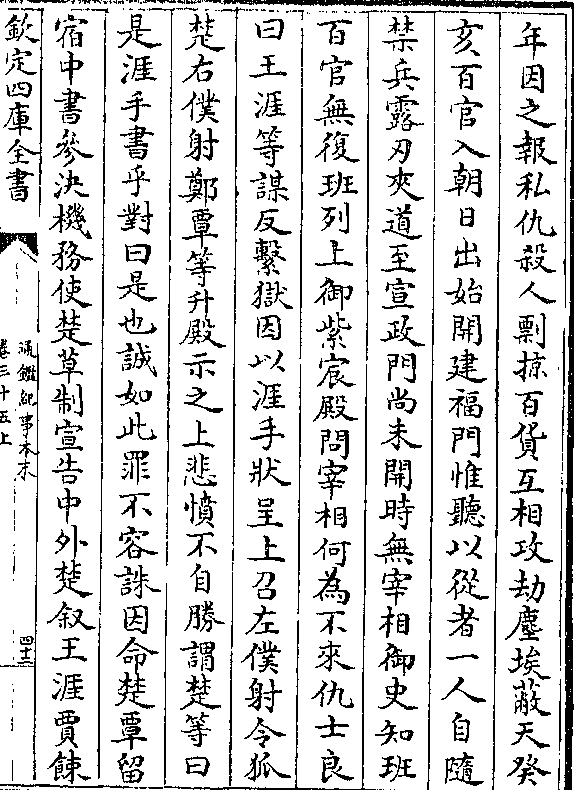 年因之報私仇殺人剽掠百貨互相攻劫塵埃蔽天癸
亥百官入朝日出始開建福門惟聽以從者一人自隨
禁兵露刃夾道至宣政門尚未開時無宰相御史知班
百官無復班列上御紫宸殿問宰相何為不來仇士良
曰王涯等謀反繫獄因以涯手狀呈上召左僕射令狐
楚右僕射鄭覃等升殿示之上悲憤不自勝謂楚等曰
是涯手書乎對曰是也誠如此罪不容誅因命楚覃留
宿中書參決機務使楚草制宣告中外楚叙王涯賈餗
欽定四庫全書
通鑑紀事本末
卷三十五上
四十二